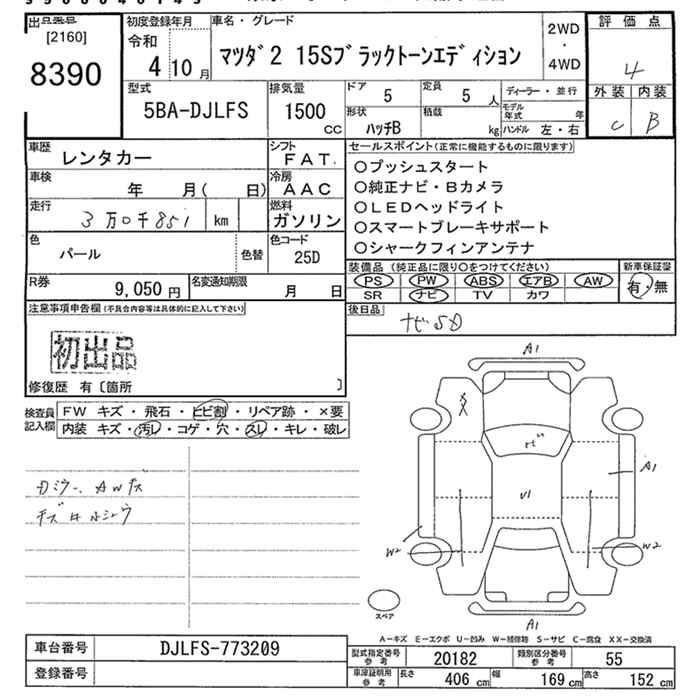 出品番号
[2160]
8390
初度登録年月
令和
4 10 月
車名・グレード
マツダ2 15Sブラックトーンエディション
2WD
・
4WD
評価点
4
外装 内装
C B
型式
5BA-DJLFS
排気量
1500
CC
ドア
5
定員
5 人
形状
ハッチB
積載
kg
ディーラー・並行
モデル年式 年
ハンドル 左・右
車歴
レンタカー
シフト
FAT.
車検
年 月( 日)
冷房
AAC
走行
3万0千851 km
燃料
ガソリン
色
パール
色替
色コード
25D
R券
9,050 円
名変通知期限
月 日
セールスポイント(正常に機能するものに限ります)
○プッシュスタート
○純正ナビ・Bカメラ
○LEDヘッドライト
○スマートブレーキサポート
○シャークフィンアンテナ
装備品(純正品に限り○をつけてください)
新車保証書
PS PW ABS エアB AW
有・無
SR ナビ TV カワ
注意事項申告欄(不具合内容等は具体的に記入して下さい)
初出品
修復歴 有〔箇所 〕
後日品
ナビSD
検査員記入欄
FW キズ・飛石・ヒビ割・リペア跡・×要
内装 キズ・汚レ・コゲ・穴・スレ・キレ・破レ
カミラー、AWキズ
キズ
A1
ナビ
A1
U1
W2
W2
スペア
A1
A-キズ E-エクボ U-凹み W-補修跡 S-サビ C-腐食 XX-交換済
車台番号
DJLFS-773209
登録番号
型式指定番号
参考
20182
類別区分番号
参考
55
車庫証明用
参考
長さ 406 cm 幅 169 cm 高さ 152 cm